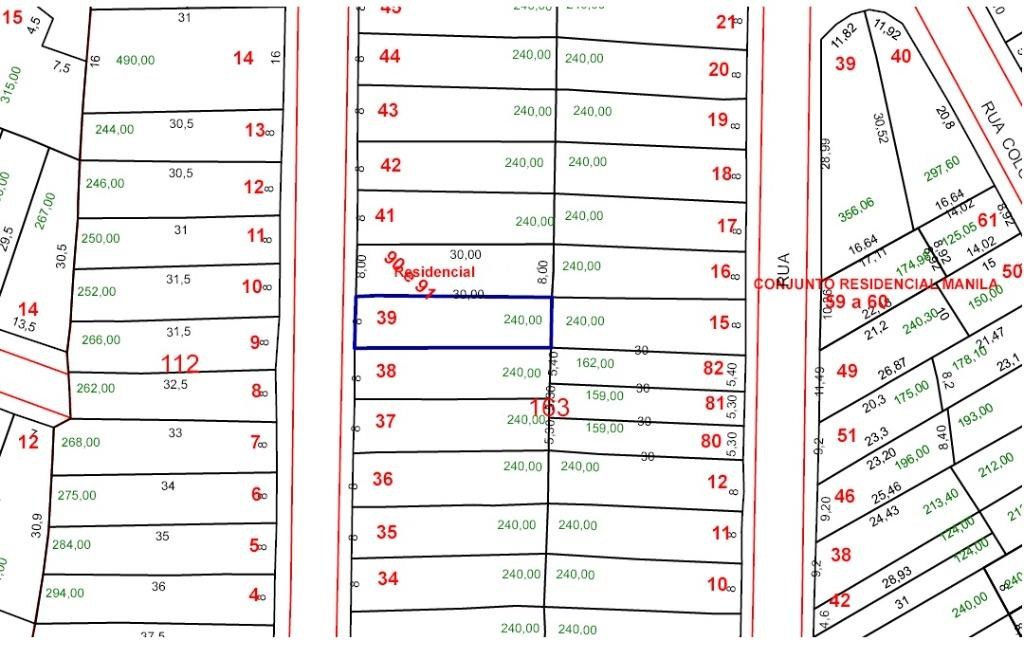 15
4,5
7,5
315,00
31
16
490,00
14
16
244,00
30,5
13
8
246,00
30,5
12
8
267,00
29,5
30,5
250,00
31
11
8
252,00
31,5
10
8
14
13,5
266,00
31,5
9
8
112
262,00
32,5
8
8
12
268,00
33
7
8
275,00
34
6
8
30,9
284,00
35
5
8
294,00
36
4
8
37,5
45
240,00
240,00
21
8
8
44
240,00
240,00
20
8
8
43
240,00
240,00
19
8
8
42
240,00
240,00
18
8
8
41
240,00
240,00
17
8
8,00
30,00
8,00
240,00
16
8
90 e 91
Residencial
30,00
8
39
240,00
240,00
15
8
30
38
240,00
5,40
162,00
82
5,40
8
30
159,00
81
5,30
163
37
240,00
5,30
30
159,00
80
5,30
8
30
36
240,00
240,00
12
8
8
35
240,00
240,00
11
8
8
34
240,00
240,00
10
8
8
240,00
240,00
RUA
RUA COLO
11,82
11,92
39
40
28,99
30,52
20,8
356,06
297,60
16,64
16,64
14,02
17,11
8,92
61
125,05
8,92
174,98
14,02
15
50
CONJUNTO RESIDENCIAL MANILA
59 a 60
150,00
240,30
10
21,2
21,47
178,10
23,1
11,49
49
26,87
8,2
175,00
20,3
193,00
51
23,3
8,40
9,2
23,20
196,00
212,00
46
25,46
213,40
9,20
24,43
124,00
124,00
38
9,2
28,93
42
31
240,00
4,6